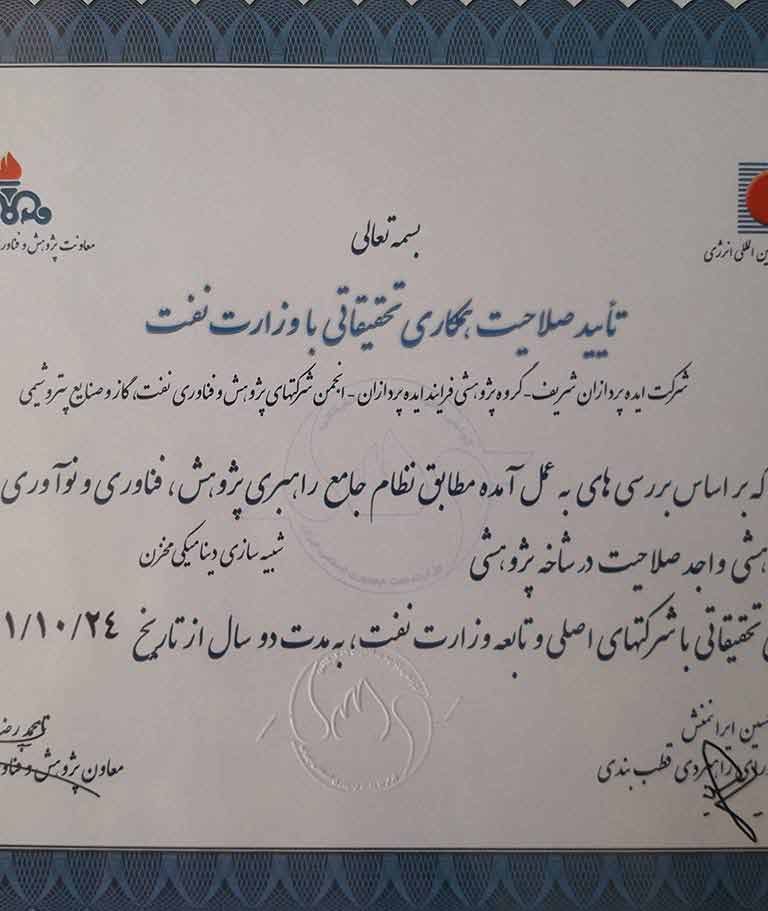 معاونت پژوهش و فناور
ین المللی انرژی
بسمه تعالی
تأیید صلاحیت همکاری تحقیقاتی با وزارت نفت
شرکت ایده پردازان شریف - گروه پژوهشی فرایند ایده پردازان - انجمن شرکتهای پژوهش و فناوری نفت، گاز و صنایع پتروشیمی
که بر اساس بررسی های به عمل آمده مطابق نظام جامع راهبری پژوهش، فناوری و نوآوری
هشی واجد صلاحیت در شاخه پژوهشی شبیه سازی دینامیکی مخزن
ی تحقیقاتی با شرکتهای اصلی و تابعه وزارت نفت، به مدت دو سال از تاریخ ۱/۱۰/۲٤
سین ایرانمنش
ورای راهبردی قطب بندی
محمد رض
معاون پژوهش و فناو